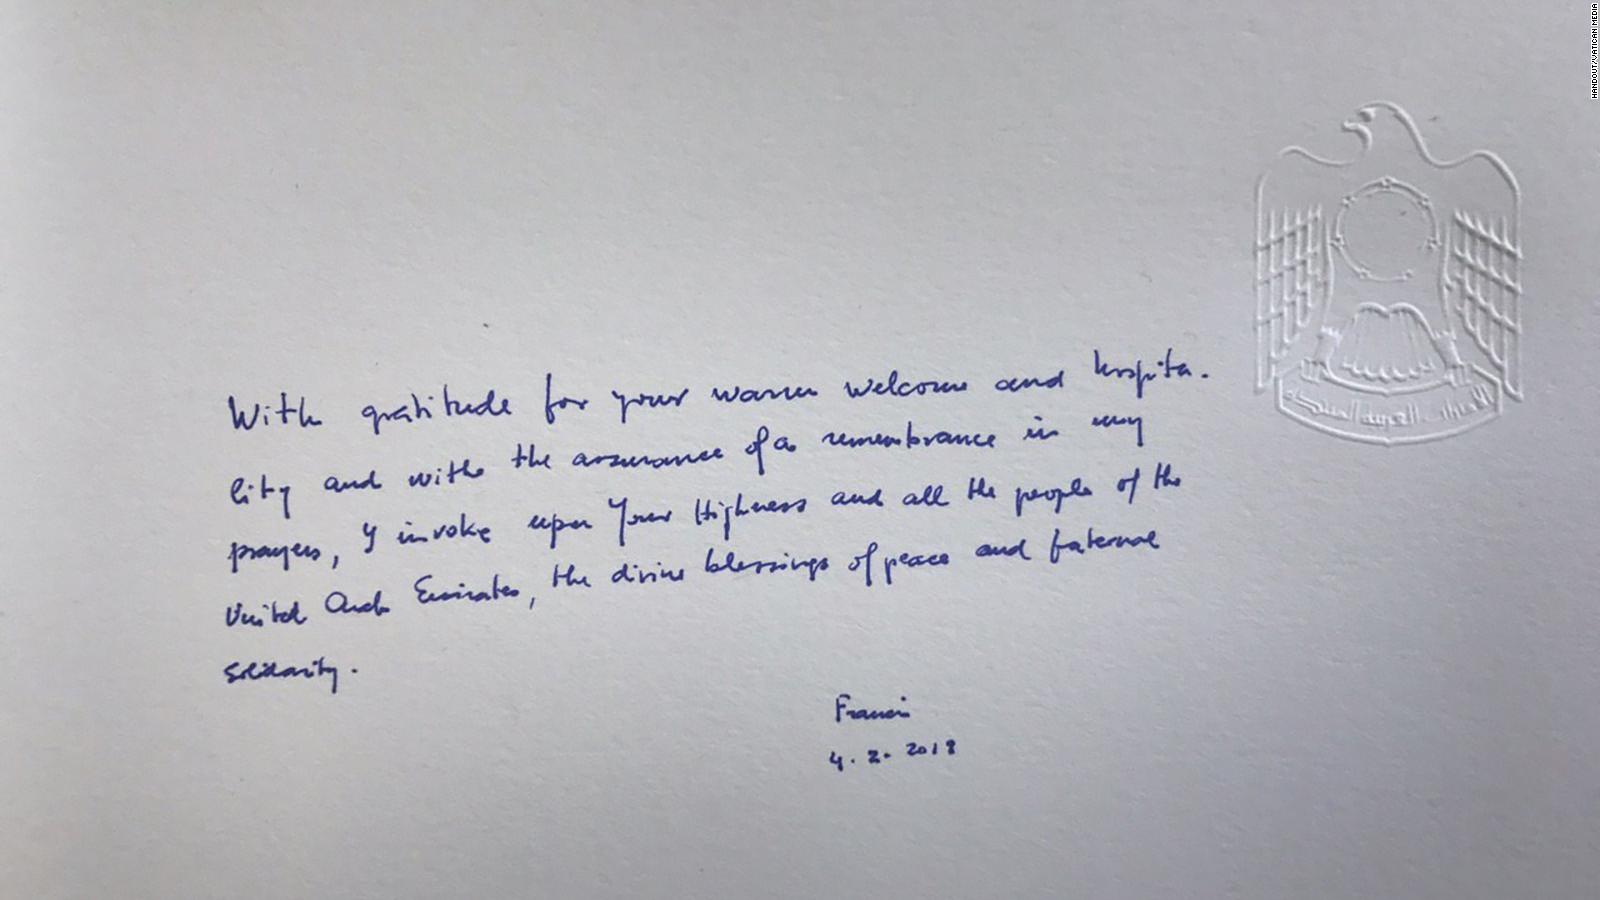 HANDOUT/VATICAN MEDIA
الإمارات العربية المتحدة
With gratitude for your warm welcome and hospita-
lity and with the assurance of a remembrance in my
prayers, I invoke upon Your Highness and all the people of the
United Arab Emirates, the divine blessings of peace and fraternal
solidarity.
Francis
4. 2. 2019